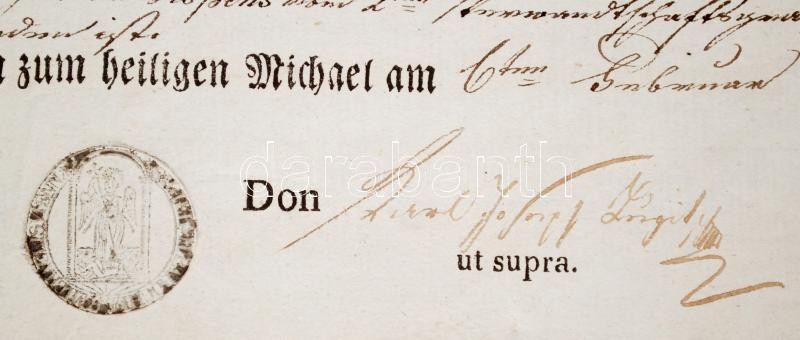 vom 2ten Verwandtschaftsgra
den ist.
zum heiligen Michael am 6ten Februar
darabanth
Don Karl Joseph
ut supra.